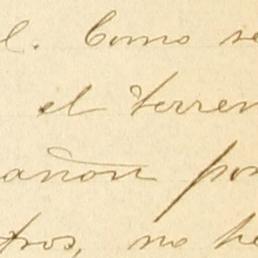 l. Como se
el terren
añon por
tros, no he